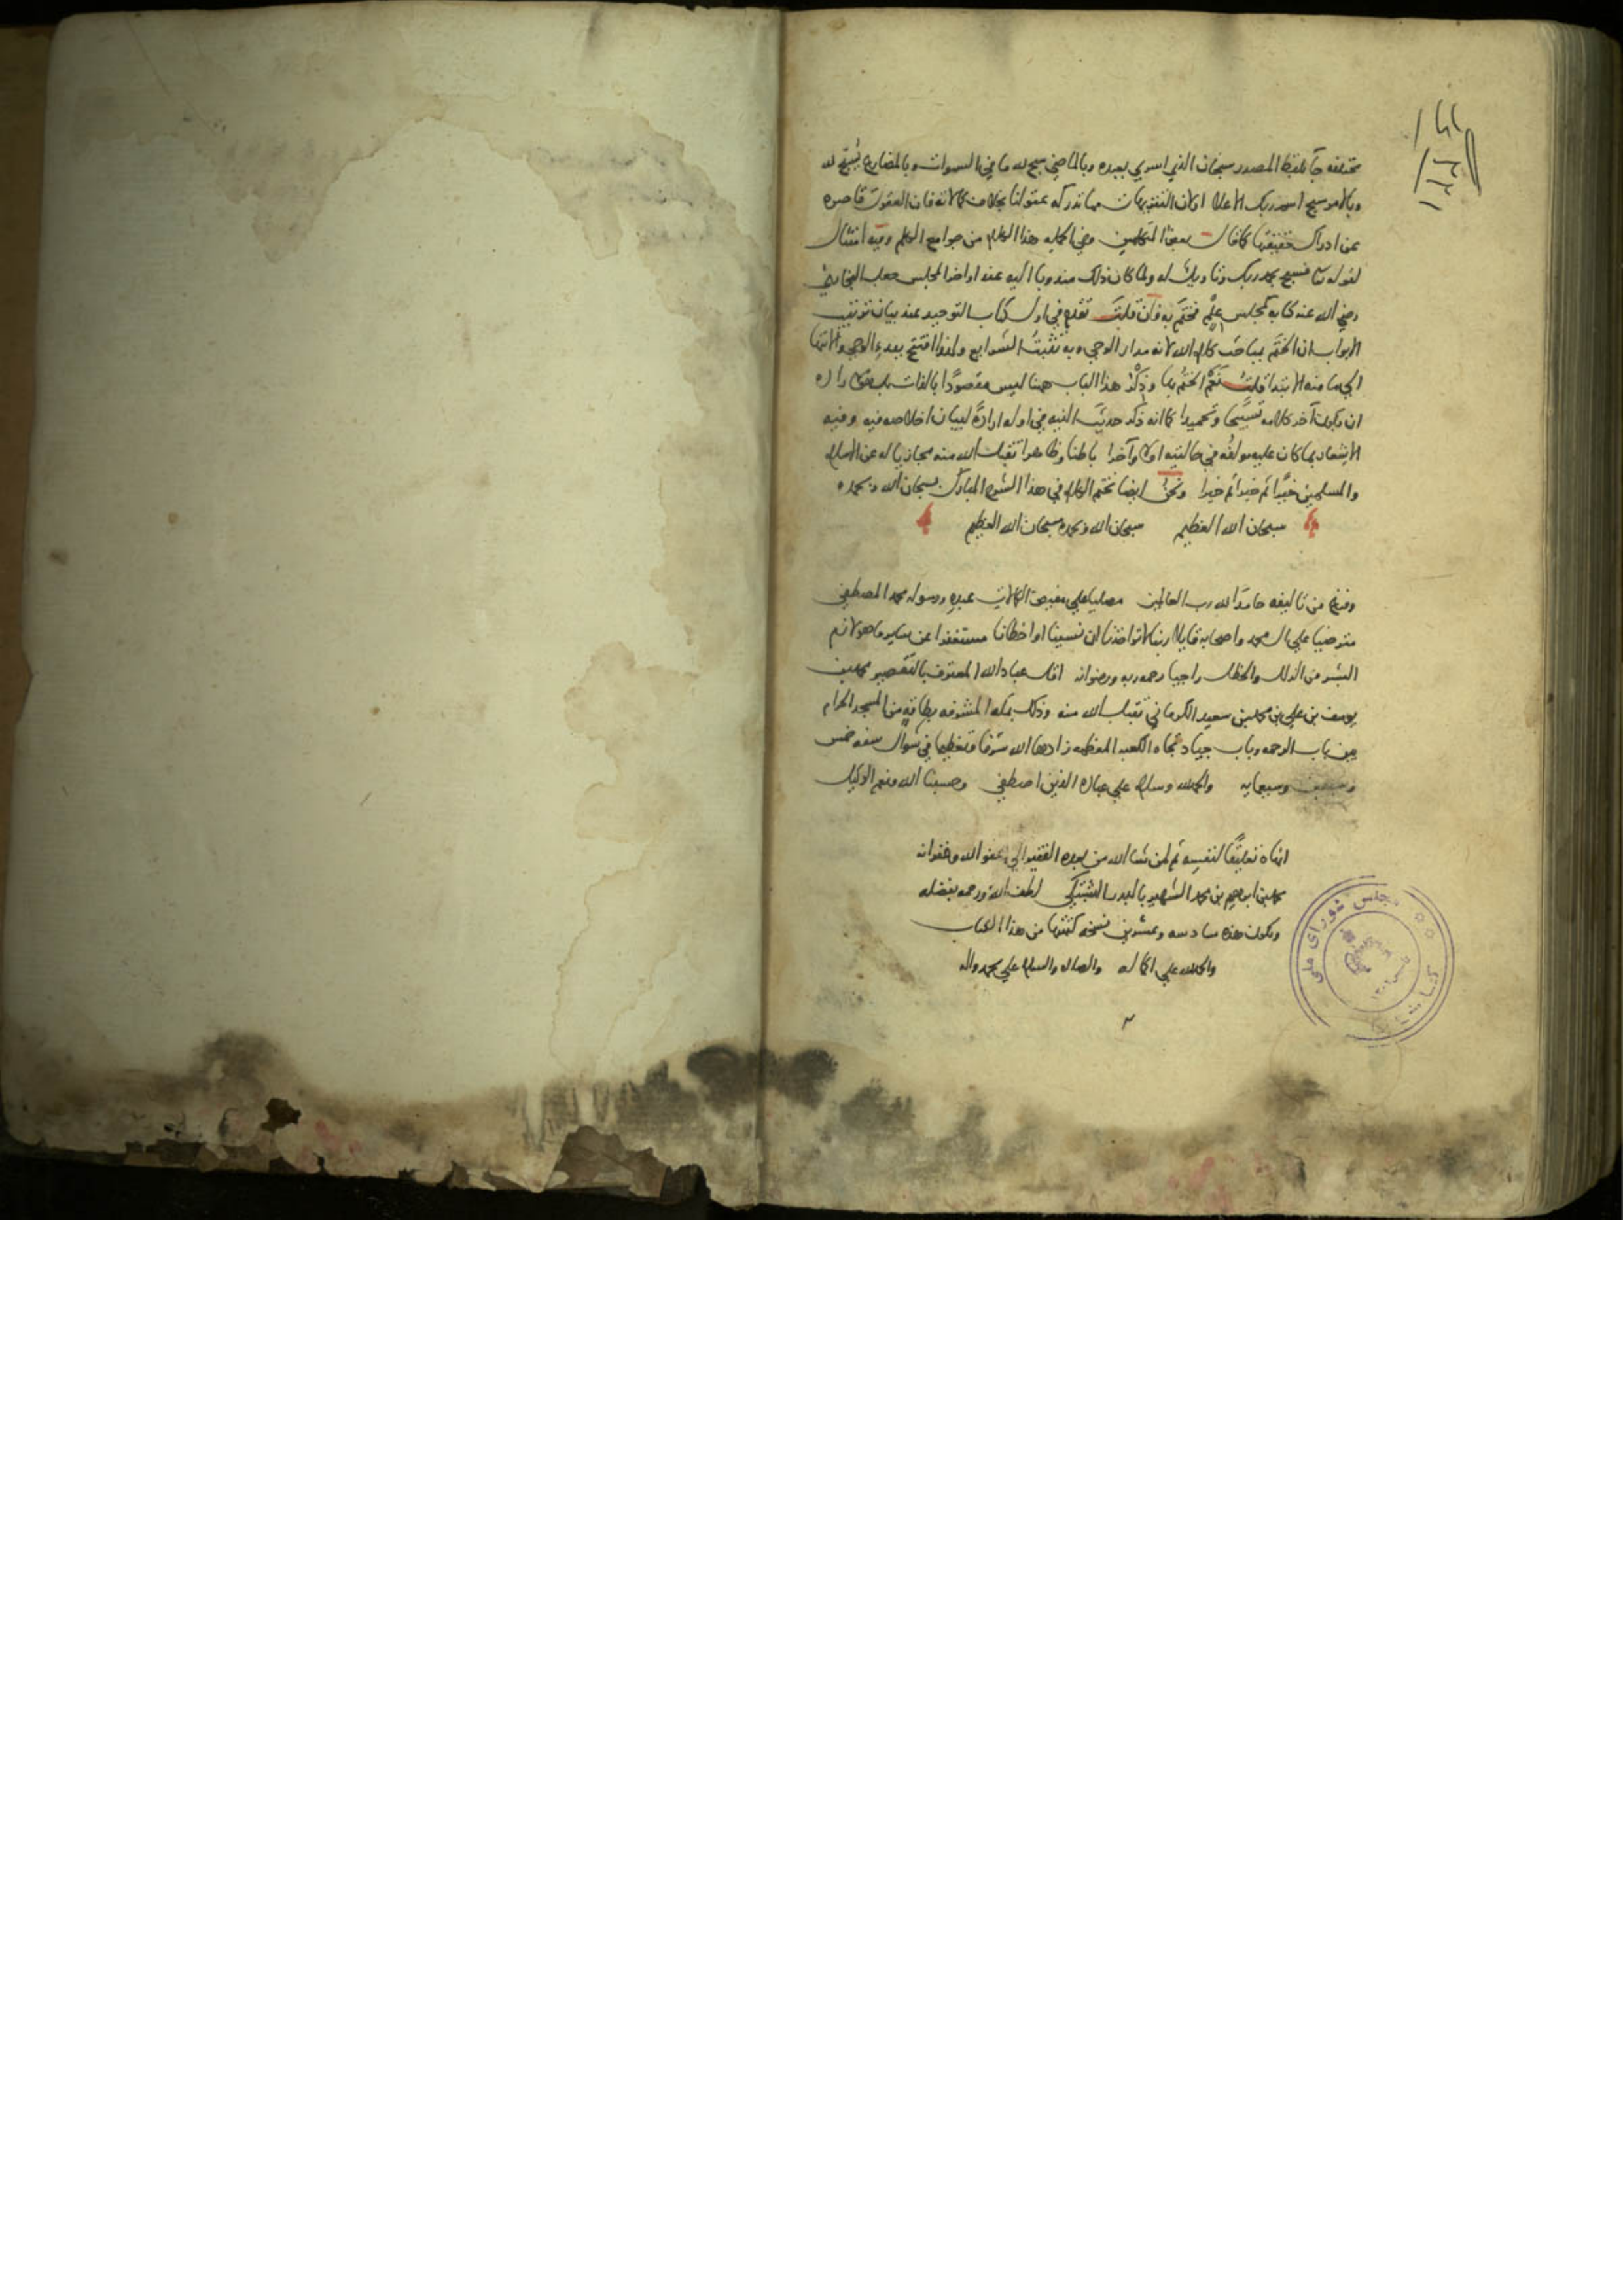 مختلفة جآ بلفظ المصدر سبحان الذي اسري بعبده وبالماضي سبح لله ما في السموات وبالمضارع يُسَبّح لله
وبالامر سبح اسم ربك الاعلا اولان التنزيهات مما تدركه عقولنا بخلاف كمالاته فان العقول قاصره
عن ادراك حقيقتها كما قال بعض المتكلمين وفي الجمله هذا الكلام من جوامع الكلم وفيه امتثال
لقوله تعالي فسبح بحمد ربك وتاويلٌ له ولما كان ذلك مندوبا اليه عند اواخر المجلس جعل البخاري
رضي الله عنه كتابه كمجلس علم فختم به فان قلت تقدم في اول كتاب التوحيد عند بيان ترتيب
الابواب ان الختم بمباحث كلام الله لانه مدار الوحي وبه تثبت الشرايع ولهذا افتتح ببدء الوحي والانتها
الي ما منه الابتدا قلت نعم الختم بها وذكر هذا الباب ههنا ليس مقصودًا بالذات بل هو لارادة
ان يكون آخر كلامه تسبيحا وتحميدا كما انه ذكر حديث النيه في اوله ارادة لبيان اخلاصه فيه وفيه
الاشعار بما كان عليه مولفه في حالتيه اولا وآخرا باطنا وظاهرا تقبل الله منه مجازيا له عن الاسلام
والمسلمين خيرًا ثم خيرا ثم خيرا ونحن ايضا نختم الكلام في هذا الشرح المبارك بسبحان الله وبحمده
سبحان الله العظيم سبحان الله وبحمده سبحان الله العظيم
وفرغ من تاليفه حامدا لله رب العالمين مصليا علي مفيض الكمالات عبده ورسوله محمد المصطفي
مترضيا علي ال محمد واصحابه قايلا ربنا لا تواخذنا ان نسينا او اخطانا مستغفرا عن ساير ما هو لازم
البشر من الزلل والخطل راجيا رحمه ربه ورضوانه اقل عباد الله المعترف بالتقصير محمد بن
يوسف بن علي بن محمد بن سعيد الكرماني تقبل الله منه وذلك بمكه المشرفه بطاقة من المسجد الحرام
بين باب الرحمه وباب جياد تجاه الكعبه المعظمه زادها الله شرفا وتعظيما في شوال سنه خمس
وسبعين وسبعمايه والحمد لله وسلام علي عباده الذين اصطفي وحسبنا الله ونعم الوكيل
انهاه تعليقًا لنفسه ثم لمن شا الله من بعده الفقير الي عفو الله وغفرانه
محمد بن ابراهيم بن محمد الشهير بالبدر البشتكي لطف الله به ورحمه بفضله
وتكون هذه سادسه وعشرين نسخه كتبتها من هذا الكتاب
والحمد لله علي اكماله والصلاه والسلام علي محمد واله
مجلس شورای ملی